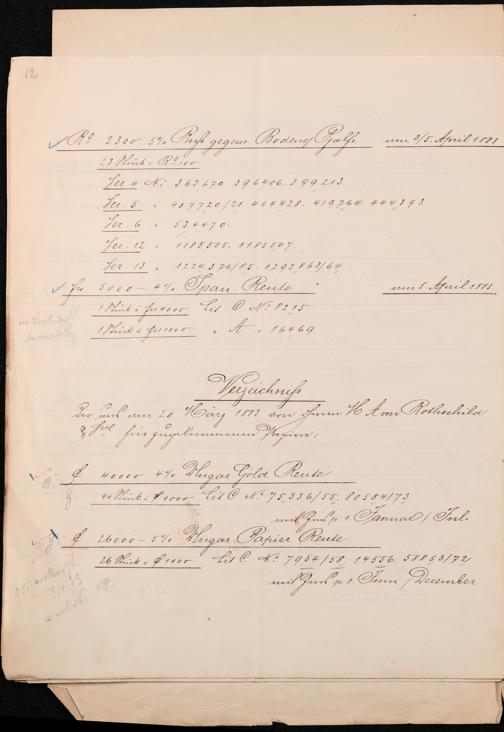 12
Ro 2300 5% Russ gegens Bodencr Pfdbfe um 3/5. April 1883
23 Stück à Ro 100
Ser 4 No 363670 396406. 399213.
Ser. 5 " 407720/21. 404428. 419764. 444393
Ser. 6 " 534470.
Ser. 12 " 1185505. 1185507.
Ser. 13 " 1224376/85. 1292863/64.
frs 5000 - 4% Span. Rente um 5. April 1883.
1 Stück à frs 4000 Lit C No 8215
1 Stück à frs 1000 " A " 16469
Verzeichniss
der uns am 20. März 1883 von Herren M A von Rothschild
& Söhne hinzugekommenen Papiere:
f 40000 4% Ungar Gold Rente
40 Stück à f 1000 Lit C No 75,336/55, 80554/73
mit Zins p. 1 Januar / Juli
f 26000 - 5% Ungar. Papier Rente
26 Stück à f 1000 Lit C No 7954/58, 14556 58853/72
mit Zins p. 1 Juni / December